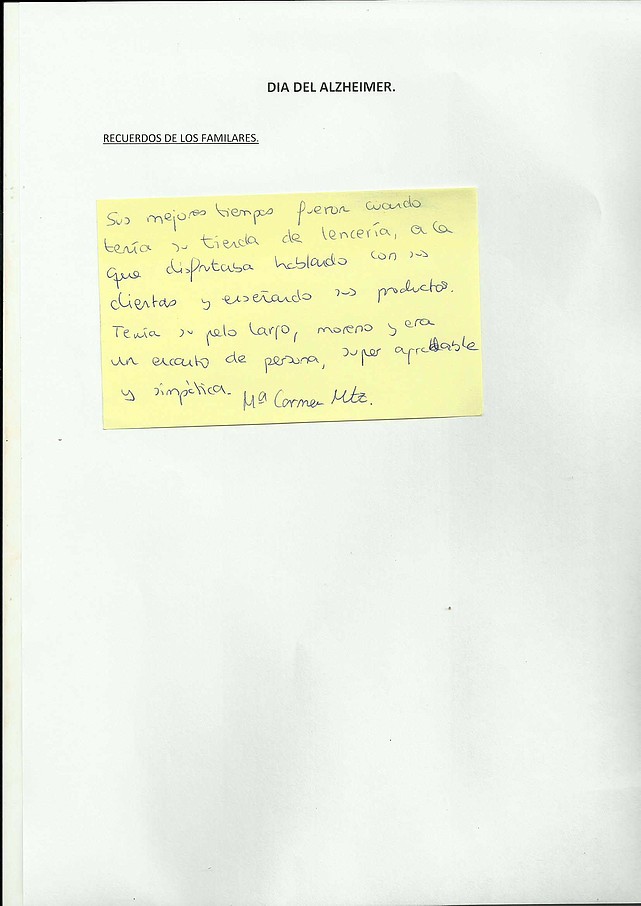 DIA DEL ALZHEIMER.
RECUERDOS DE LOS FAMILARES.
Sus mejores tiempos fueron cuando
tenía su tienda de lencería, a la
que disfrutaba hablando con sus
clientas y enseñando sus productos.
Tenía su pelo largo, moreno y era
un encanto de persona, super agradable
y simpática. Mª Carmen Mtz.